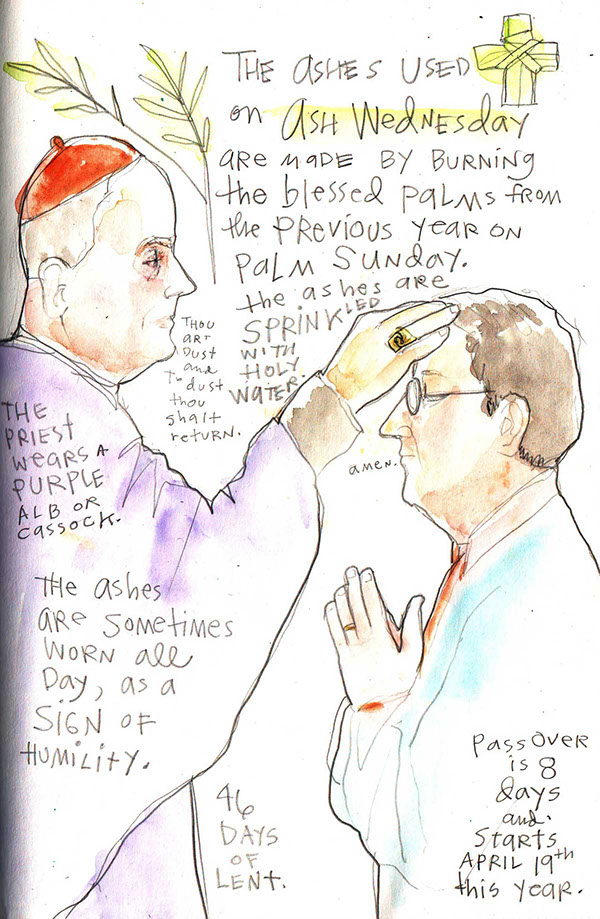 THE ASHES USED
on ASH WEDNESday
ARE MADE BY BURNING
the blessed PALMS FROM
the PREVIOUS YEAR ON
PALM SUNday.
the ashes ARE
SPRINKLED
WITH
HOLY
WATER.
THOU
ART
DUST
and
To dust
thou
shalt
return.
amen.
THE
PRIEST
WEARS A
PURPLE
ALB OR
CASSOCK.
THE ashes
ARE SOMEtimes
WORN all
Day, as a
SIGN OF
HUMILITY.
46
DAYS
OF
LENT.
PASSOVER
is 8
days
and
Starts
APRIL 19th
this YEAR.